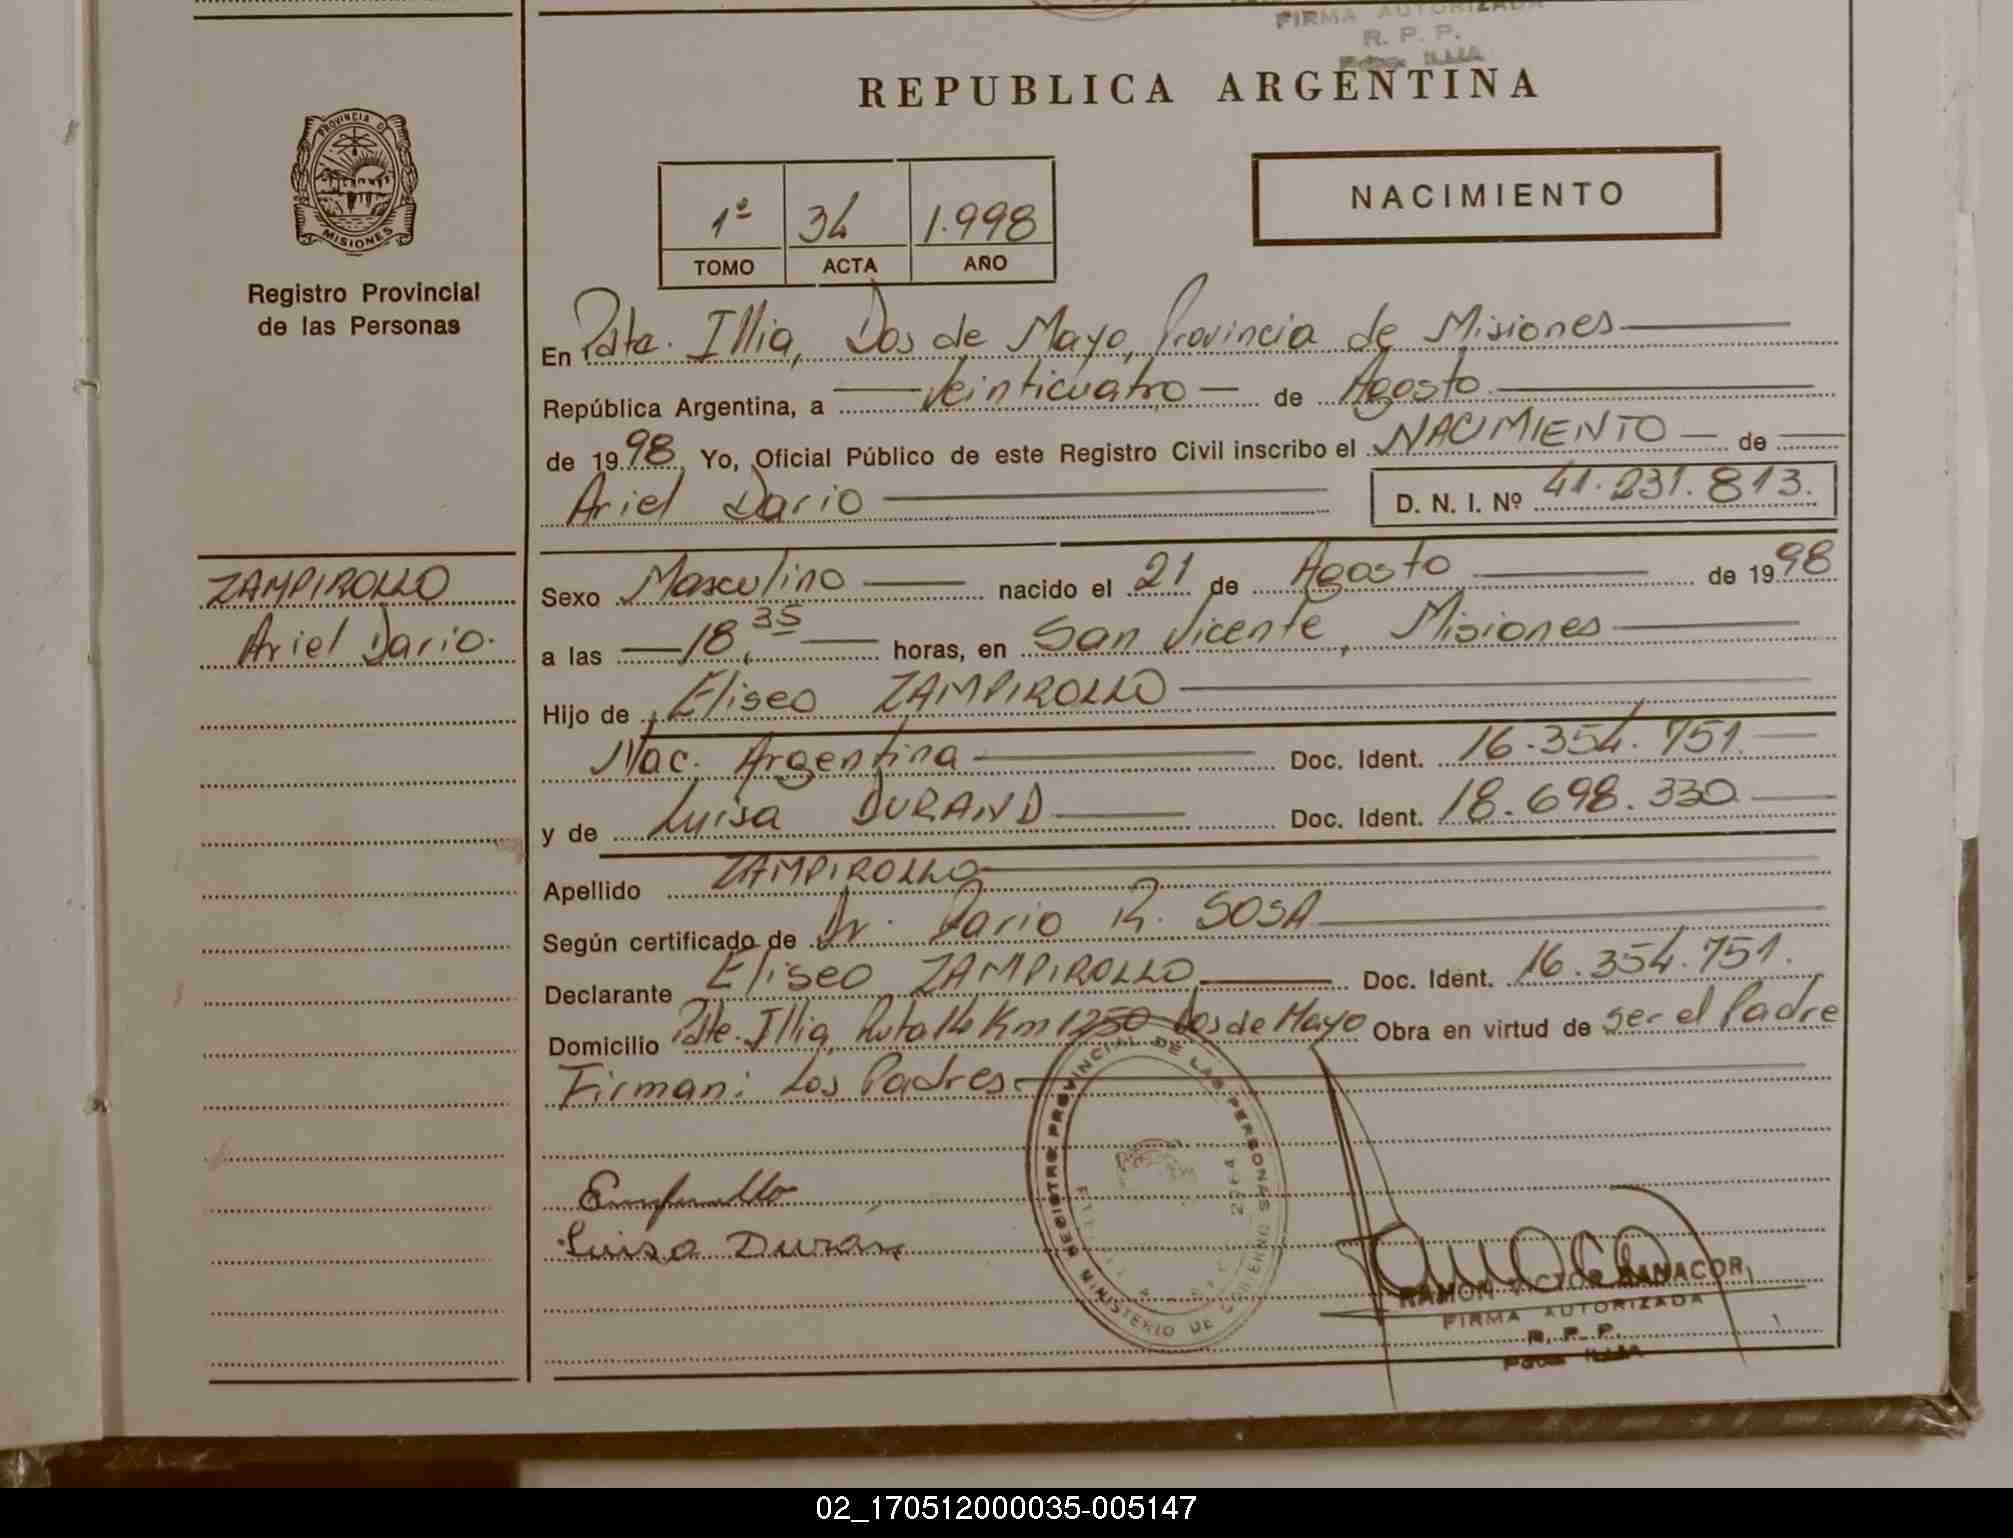 FIRMA AUTORIZADA
R. P. P.
Pdte. ILLIA
REPUBLICA ARGENTINA
PROVINCIA DE
MISIONES
Registro Provincial
de las Personas
1º 34 1.998
TOMO ACTA AÑO
NACIMIENTO
En Pdte. Illia, Dos de Mayo, Provincia de Misiones
República Argentina, a Veinticuatro de Agosto
de 1998 Yo, Oficial Público de este Registro Civil inscribo el NACIMIENTO de
Ariel Dario D. N. I. Nº 41.231.813.
ZAMPIROLLO
Ariel Dario.
Sexo Masculino nacido el 21 de Agosto de 1998
a las 18,35 horas, en San Vicente, Misiones
Hijo de Eliseo ZAMPIROLLO
Nac. Argentina Doc. Ident. 16.354.751.
y de Luisa DURAND Doc. Ident. 18.698.330
Apellido ZAMPIROLLO
Según certificado de Dr. Dario R. SOSA
Declarante Eliseo ZAMPIROLLO Doc. Ident. 16.354.751.
Domicilio Pdte. Illia, Ruta 14 Km 1250 Dos de Mayo Obra en virtud de ser el Padre
Firman: Los Padres
MINISTERIO DE GOBIERNO
REGISTRO PROVINCIAL DE LAS PERSONAS
2964
Luisa Durán
RAMON VICTOR
FIRMA AUTORIZADA
R. P. P.
Pdte. ILLIA
02_170512000035-005147